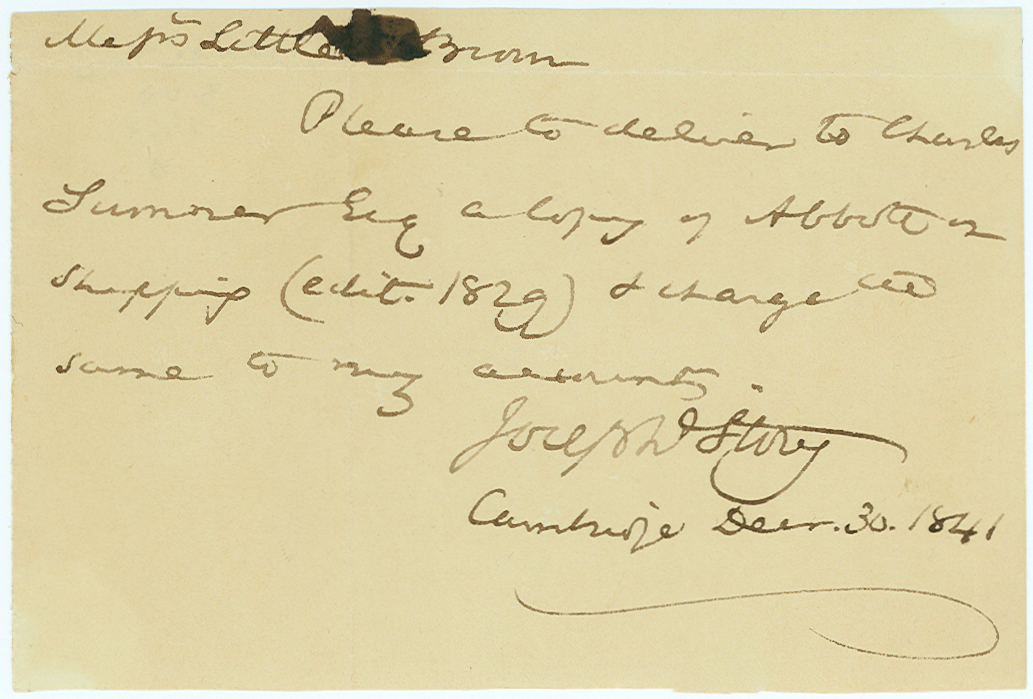 Messrs Little & Brown
Please to deliver to Charles
Sumner Esq a copy of Abbott on
shipping (edit. 1829) & charge the
same to my account.
Joseph Story
Cambridge Decr. 30. 1841